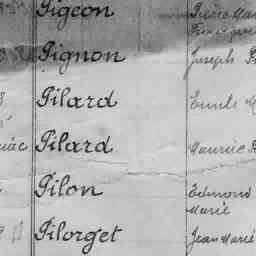 Pigeon
Pignon Joseph
Pilard Emile
Pilard Maurice
Pilon Edmond
Marie
Pilorget Jean Marie